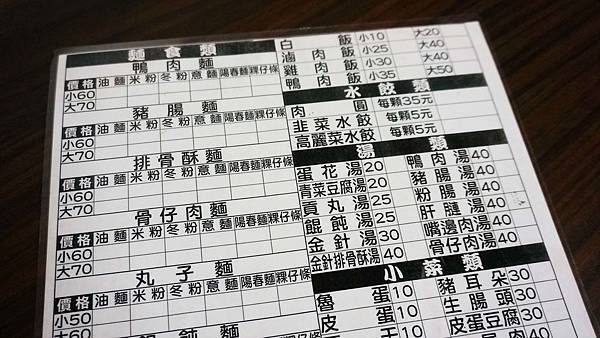 麵食類
鴨肉麵
價格 油麵 米粉 冬粉 意麵 陽春麵 粿仔條
小60
大70
豬腸麵
價格 油麵 米粉 冬粉 意麵 陽春麵 粿仔條
小60
大70
排骨酥麵
價格 油麵 米粉 冬粉 意麵 陽春麵 粿仔條
小60
大70
骨仔肉麵
價格 油麵 米粉 冬粉 意麵 陽春麵 粿仔條
小60
大70
丸子麵
價格 油麵 米粉 冬粉 意麵 陽春麵 粿仔條
小50
大60
白飯 小10 大20
滷肉飯 小25 大40
雞肉飯 小30 大40
鴨肉飯 小35 大50
水餃類
肉圓 每顆35元
韭菜水餃 每顆5元
高麗菜水餃 每顆5元
湯類
蛋花湯20 鴨肉湯40
青菜豆腐湯20 豬腸湯40
貢丸湯25 粉腸湯40
餛飩湯25 肝腱湯40
金針湯30 嘴邊肉湯40
金針排骨酥湯40 骨仔肉湯40
小菜類
魯蛋10 豬耳朵30
皮蛋10 生腸頭30
皮蛋豆腐30